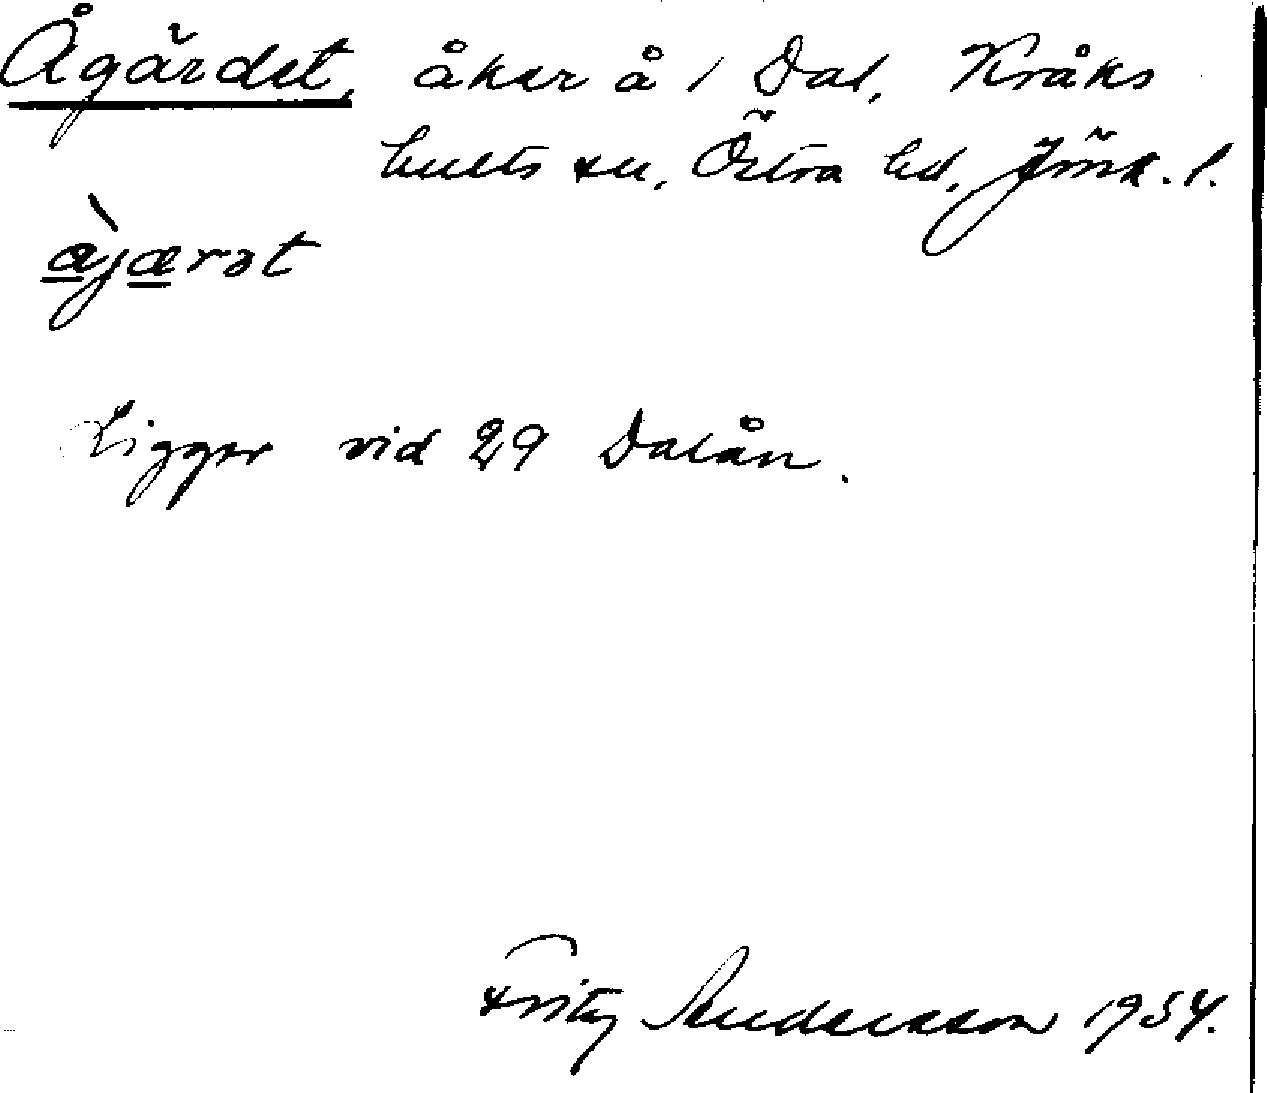 Ågärdet, åker å 1 Dal, Kråks
hults sn, Östra hd, Jönk. l.
àjærət
Ligger vid 29 Dalån.
Fritz Andersson 1954.